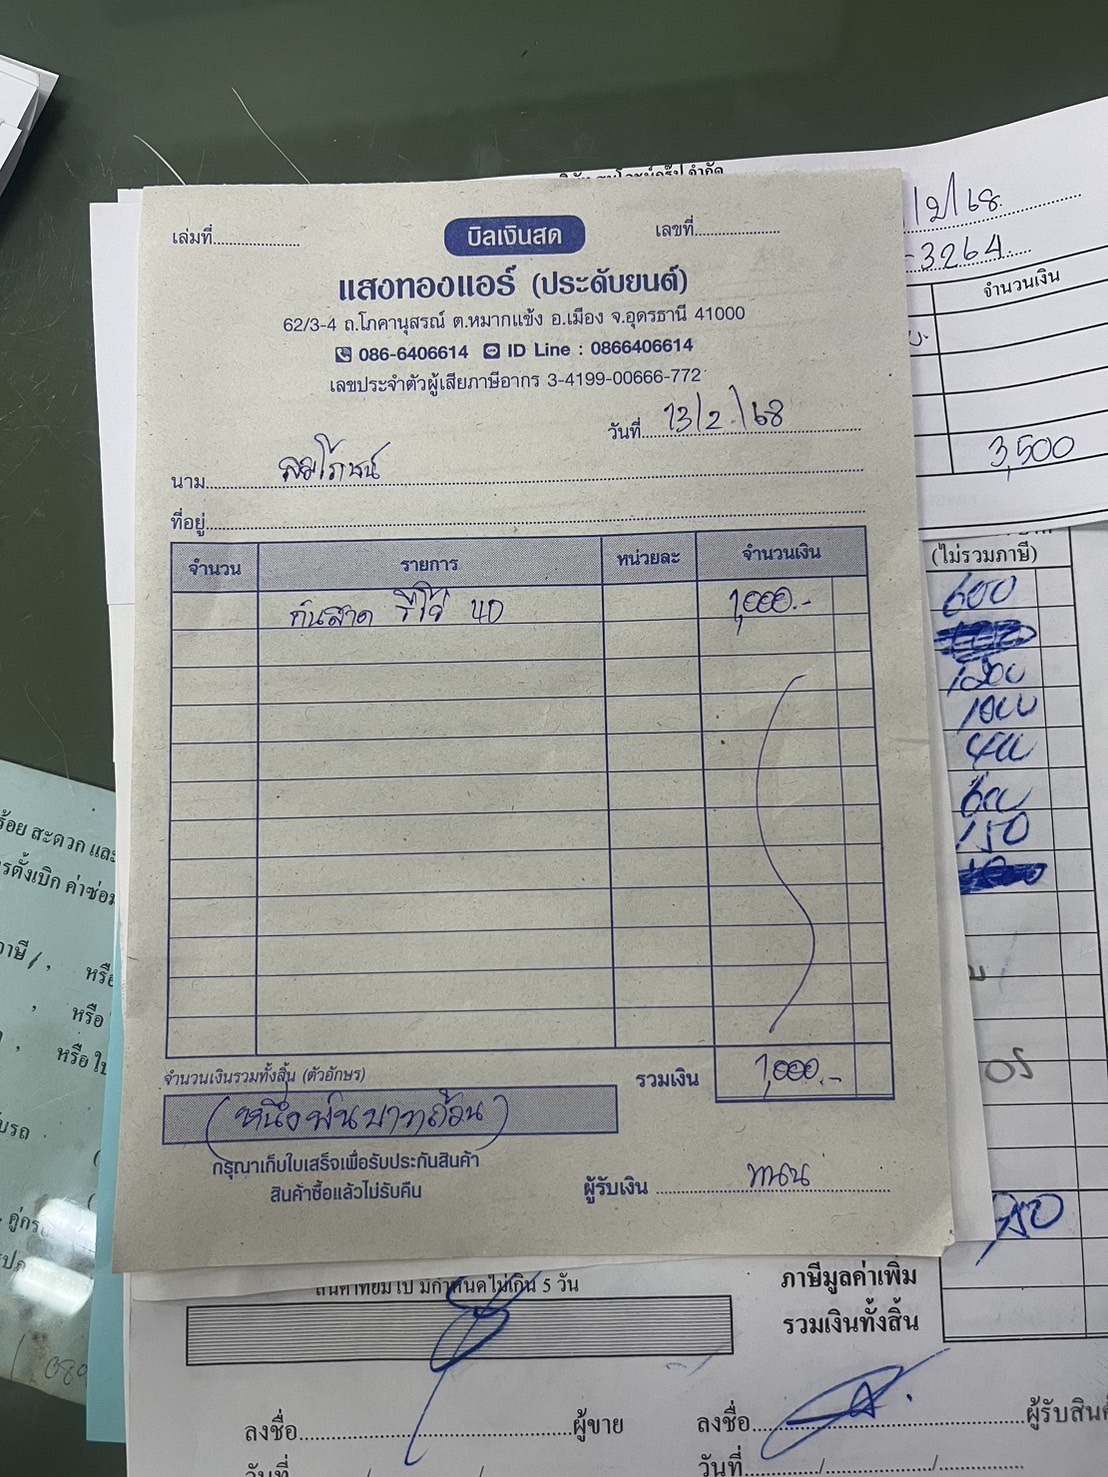 เล่มที่....................
บิลเงินสด
เลขที่....................
แสงทองแอร์ (ประดับยนต์)
62/3-4 ถ.โภคานุสรณ์ ต.หมากแข้ง อ.เมือง จ.อุดรธานี 41000
086-6406614 ID Line : 0866406614
เลขประจำตัวผู้เสียภาษีอากร 3-4199-00666-772
วันที่ 13/2/68
นาม สมโภชน์
ที่อยู่
จำนวน รายการ หน่วยละ จำนวนเงิน
กันสาด รีโว่ 4D 1,000.-
จำนวนเงินรวมทั้งสิ้น (ตัวอักษร)
รวมเงิน 1,000.-
(หนึ่งพันบาทถ้วน)
กรุณาเก็บใบเสร็จเพื่อรับประกันสินค้า
สินค้าซื้อแล้วไม่รับคืน
ผู้รับเงิน
/2/68
-3264
จำนวนเงิน
3,500
(ไม่รวมภาษี)
600
1200
1000
400
600
150
ร้อย สะดวก และ
หรือ
หรือ
มีกำหนดไม่เกิน 5 วัน
ภาษีมูลค่าเพิ่ม
รวมเงินทั้งสิ้น
ลงชื่อ....................ผู้ขาย
ลงชื่อ....................ผู้รับสินค้
วันที่ / /
วันที่ / /